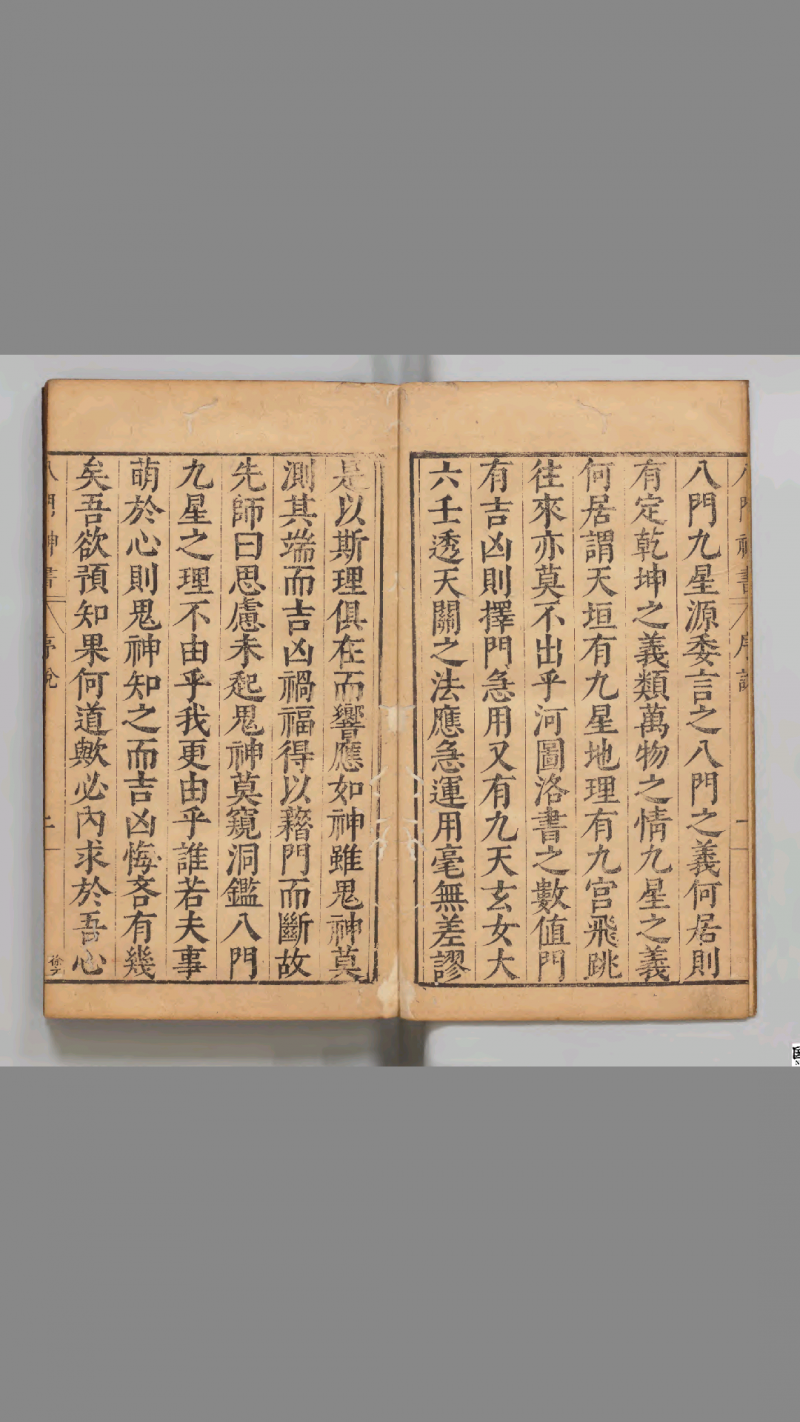 八門神書 序說 一
八門九星源委言之八門之義何居則
有定乾坤之義類萬物之情九星之義
何居謂天垣有九星地理有九宮飛跳
往來亦莫不出乎河圖洛書之數值門
有吉凶則擇門急用又有九天玄女大
六壬透天關之法應急運用毫無差謬
是以斯理俱在而響應如神雖鬼神莫
測其端而吉凶禍福得以藉門而斷故
先師曰思慮未起鬼神莫窺洞鑑八門
九星之理不由乎我更由乎誰若夫事
萌於心則鬼神知之而吉凶悔吝有幾
矣吾欲預知果何道歟必內求於吾心
八門神書 序說